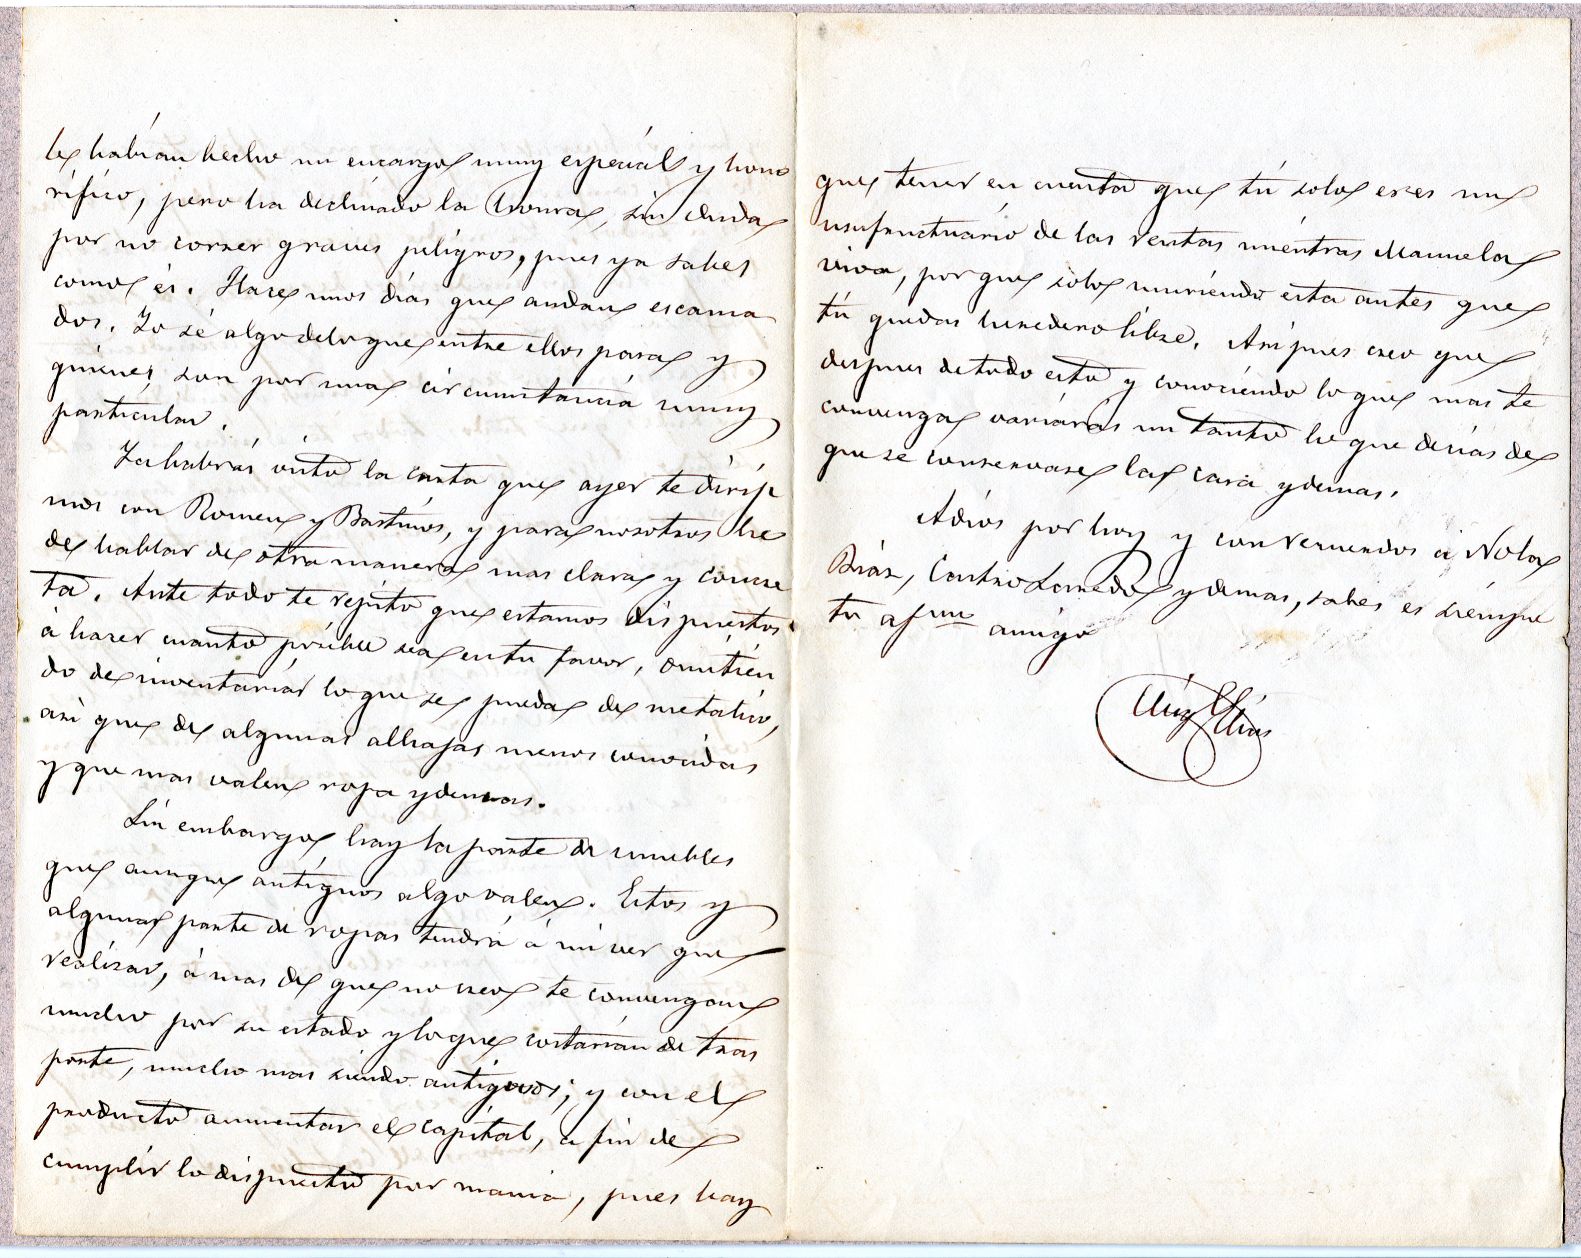 le habian hecho un encargo muy especial y hono
rífico, pero ha declinado la honra, sin duda
por no correr graves peligros, pues ya sabes
como és. Hace unos dias que andan escama
dos. Yo sé algo delo que entre ellos pasa y
quienes son por una circunstancia muy
particular.
Ya habrás visto la carta que ayer te dirigi
mos con Romeu y Bastinos, y para nosotros he
de hablar de otra manera mas clara y concre
ta. Ante todo te repito que estamos dispuestos
á hacer cuanto posible sea en tu favor, omitien
do de inventariar lo que se pueda de metálico,
asi que de algunas alhajas menos conocidas
y que mas valen ropa y demas.
Sin embargo, hay la parte de muebles
que aunque antiguos algo valen. Estos y
alguna parte de ropas tendrá á mi ver que
realizar, á mas de que no creo te convengan
mucho por su estado y lo que costarian de tras
porte, mucho mas siendo antiguos; y con el
producto aumentar el capital, a fin de
cumplir lo dispuesto por mamá, pues hay
que tener en cuenta que tú solo eres un
usufructuario de las rentas miéntras Manuela
viva, por que solo muriendo esta antes que
tú quedas heredero libre. Asi pues creo que
despues de todo esto y conociendo lo que mas te
convenga variarás un tanto lo que decias de
que se conservase la casa y demas.
Adios por hoy y con recuerdos á Nola
Diáz, Castro Losada y demas, sabes es siempre
tu afmo amigo
Elias